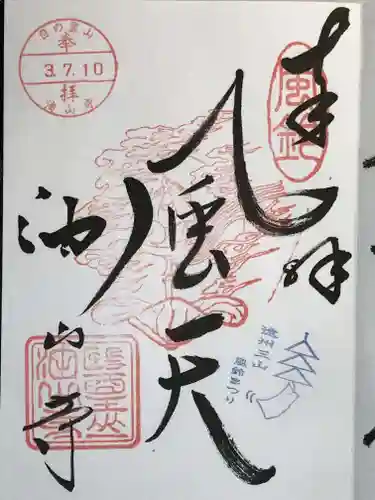 奉拝
風鈴
風天
油山寺
目の霊山
奉
3.7.10
拝
油山寺
遠州三山
風鈴まつり